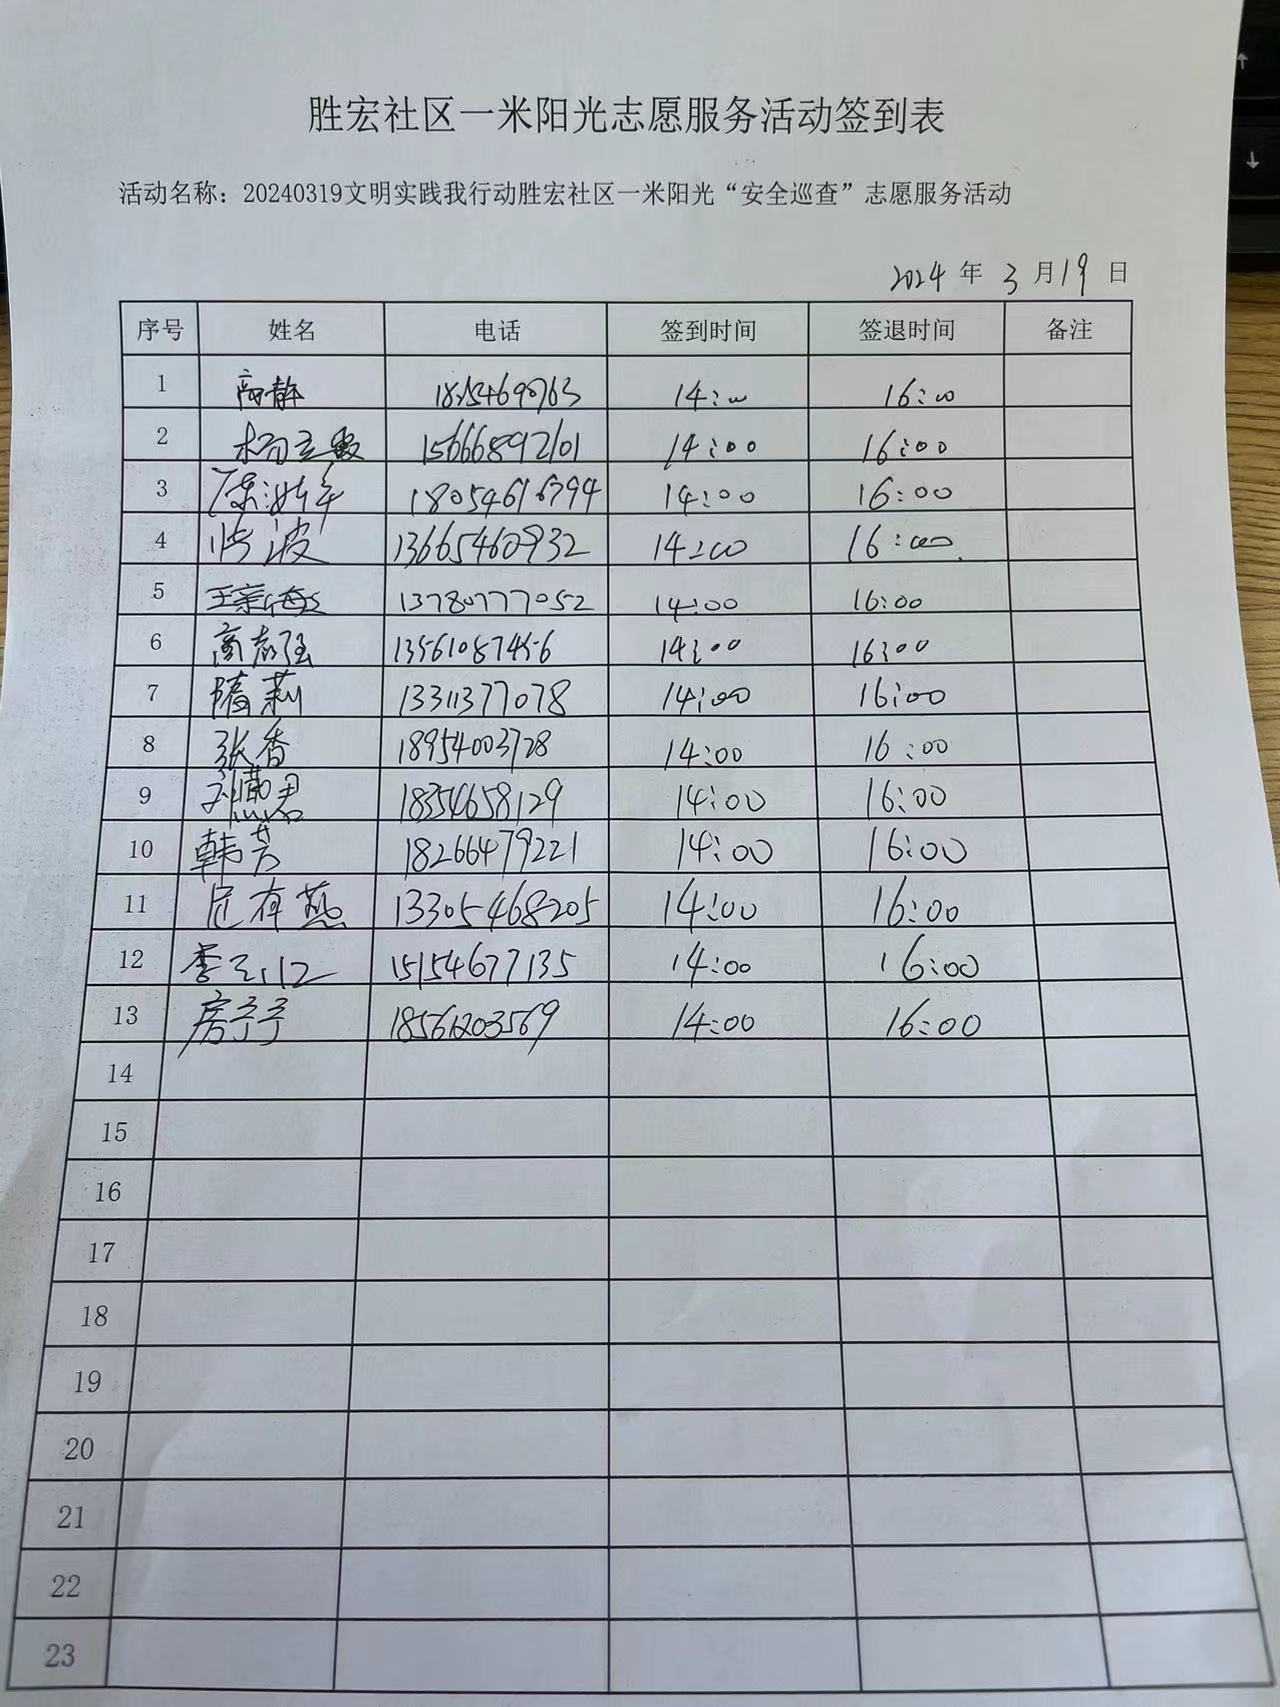 胜宏社区一米阳光志愿服务活动签到表
活动名称：20240319文明实践我行动胜宏社区一米阳光“安全巡查”志愿服务活动
2024 年 3 月 19 日
序号 姓名 电话 签到时间 签退时间 备注
1 高静 14:00 16:00
2 15666892101 14:00 16:00
3 18054616794 14:00 16:00
4 13665460932 14:00 16:00
5 13780777052 14:00 16:00
6 13561087456 14:00 16:00
7 隋莉 13311377078 14:00 16:00
8 张香 18954003728 14:00 16:00
9 18354658129 14:00 16:00
10 韩芳 18266479221 14:00 16:00
11 13305468205 14:00 16:00
12 15154677135 14:00 16:00
13 18561203569 14:00 16:00
14
15
16
17
18
19
20
21
22
23